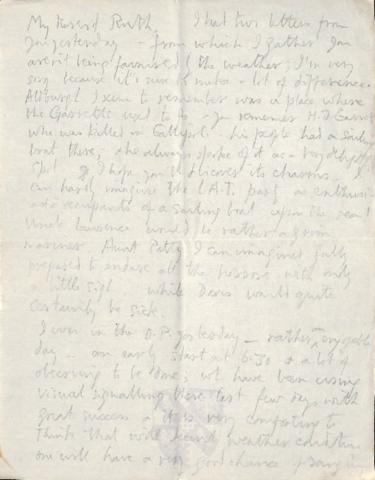 My dearest Ruth, I had two letters from
you yesterday - from which I gather you
aren't being favoured by the weather; I'm very
sorry because it's sure to make a lot of difference.
Aldburgh I seem to remember was a place where
the Garretts used to be - you remember H.F. Garrett
who was killed in Gallipoli - his people had a sailing
boat there; & he always spoke of it as a very delightful
spot. I hope you'll discover its charms. I
can hardly imagine the L.A.T. party as enthusi-
astic occupants of a sailing boat upon the sea!
Uncle Lawrence would be rather a grim
mariner. Aunt Patty I can imagine fully
prepared to endure all the horrors with only
a little sigh while Doris would quite
certainly be sick.
I was in the O.P. yesterday - rather an enjoyable
day - an early start at 6.30 & a lot of
observing to be done; we have been using
visual signalling these last few days with
great success & it is very comforting to
think that with decent weather conditions
one will have a very good chance of